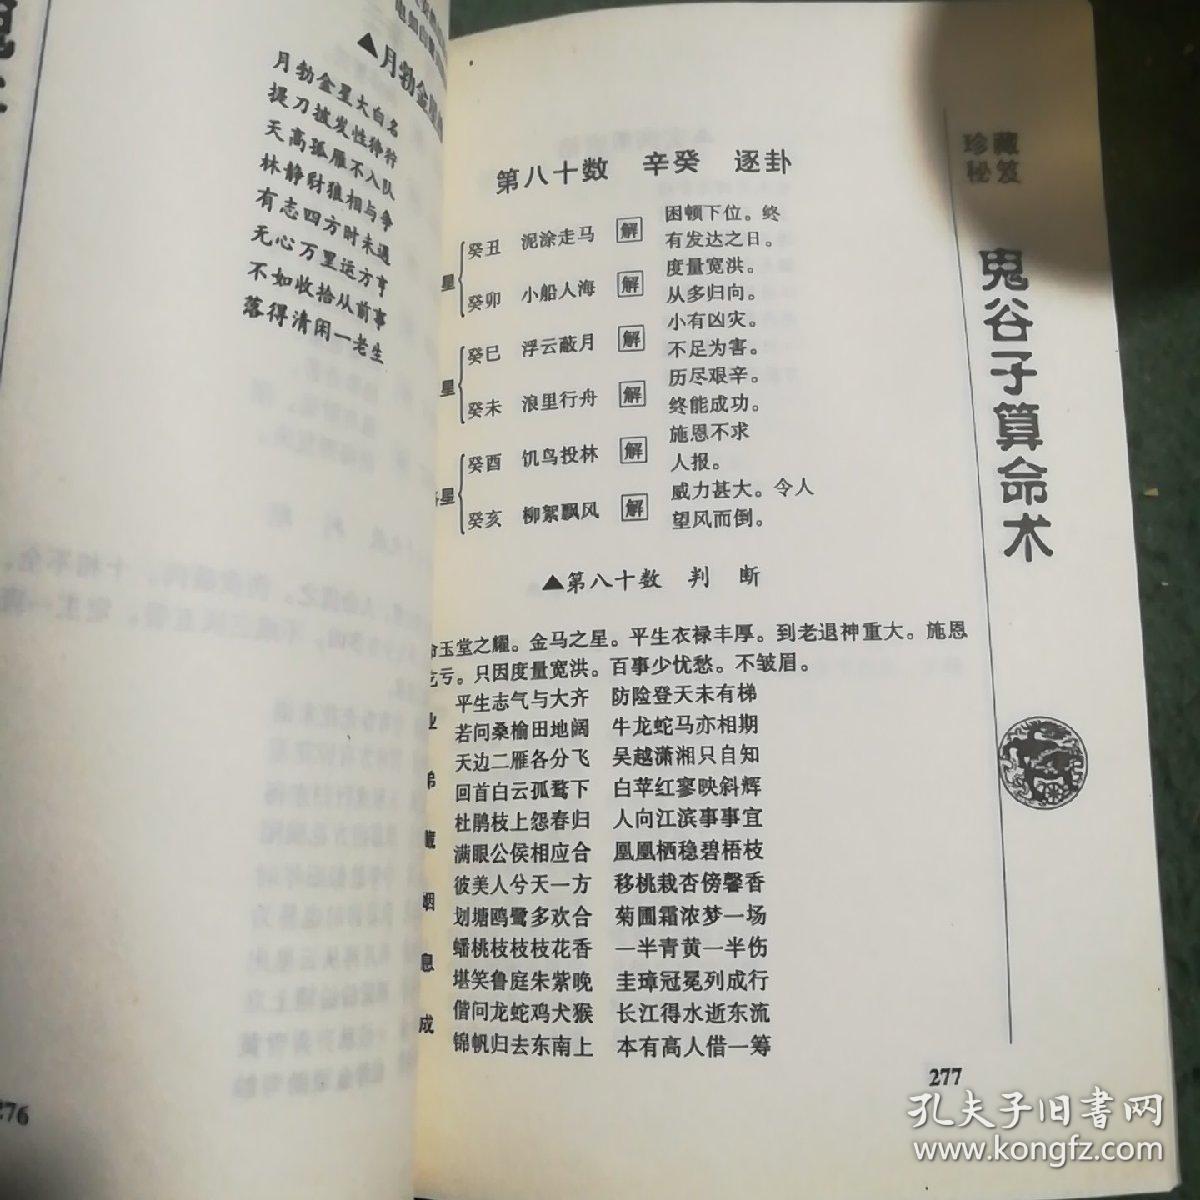 ▲月勃金
月勃金星大白名
提刀披发性狰狞
天高孤雁不入队
林静豺狼相与争
有志四方时未遇
无心万里运方亨
不如收拾从前事
落得清闲一老生
276
珍藏
秘笈
鬼谷子算命术
第八十数 辛癸 逐卦
星
癸丑 泥涂走马 解 困顿下位。终
有发达之日。
癸卯 小船人海 解 度量宽洪。
从多归向。
星
癸巳 浮云蔽月 解 小有凶灾。
不足为害。
癸未 浪里行舟 解 历尽艰辛。
终能成功。
星
癸酉 饥鸟投林 解 施恩不求
人报。
癸亥 柳絮飘风 解 威力甚大。令人
望风而倒。
▲第八十数 判 断
玉堂之耀。金马之星。平生衣禄丰厚。到老退神重大。施恩
亏。只因度量宽洪。百事少忧愁。不皱眉。
平生志气与大齐 防险登天未有梯
业 若问桑榆田地阔 牛龙蛇马亦相期
天边二雁各分飞 吴越潇湘只自知
弟 回首白云孤鹜下 白苹红寥映斜辉
杜鹃枝上怨春归 人向江滨事事宜
满眼公侯相应合 凰凰栖稳碧梧枝
彼美人兮天一方 移桃栽杏傍馨香
姻 划塘鸥鹭多欢合 菊圃霜浓梦一场
蟠桃枝枝枝花香 一半青黄一半伤
息 堪笑鲁庭朱紫晚 圭璋冠冕列成行
偕问龙蛇鸡犬猴 长江得水逝东流
成 锦帆归去东南上 本有高人借一筹
277
孔夫子旧书网
www.kongfz.com